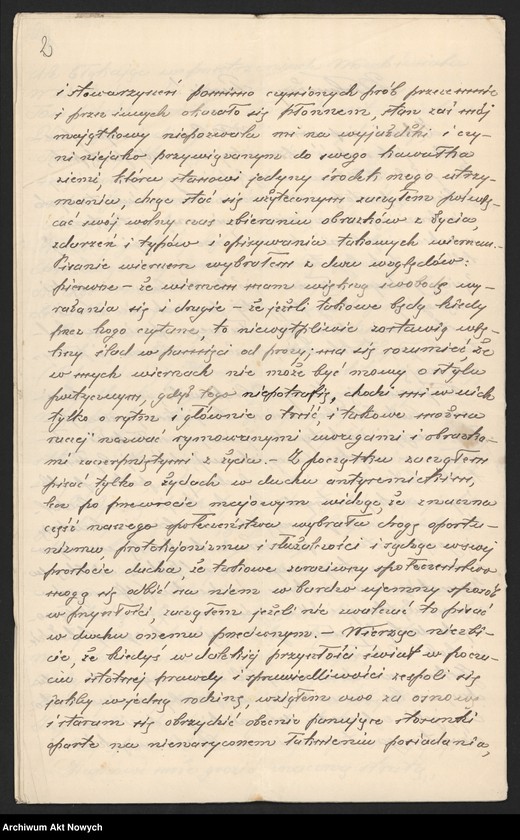 2
i stowarzyszeń pomimo czynionych prób przezemnie
i przez innych okazało się płonnem, stan zaś mój
majątkowy niepozwala mi na wyjazdki i czy-
ni niejako przywiązanym do swego kawałka
ziemi, która stanowi jedyny środek mego utrzy-
mania, chcąc stać się użytecznym zacząłem poświę-
cać swój wolny czas zbieraniu obrazków z życia,
zdarzeń i typów i opisywania takowych wierszem.
Pisanie wierszem wybrałem z dwu względów:
pierwsze – że wierszem mam większą swobodę wy-
rażania się i drugie – że jeżeli takowe będą kiedy
przez kogo czytane, to niewątpliwie zostawią więk-
szy ślad w pamięci od prozy; ma się rozumieć że
w mych wierszach nie może być mowy o stylu
poetycznym, gdyż tego niepotrafię, chodzi mi w nich
tylko o rytm i głównie o treść i takowe można
raczej nazwać rymowanymi uwagami i obrazka-
mi zaczerpniętymi z życia. – Z początku zacząłem
pisać tylko o żydach w duchu antysemickim,
lecz po przewrocie majowym widząc, że znaczna
część naszego społeczeństwa wybrała drogę oportu-
nizmu, protekcjonizmu i służalczości i sądząc w swej
prostocie ducha, że takowe zaraziwszy społeczeństwo
mogą się odbić na niem w bardzo ujemny sposób
w przyszłości, zacząłem jeżeli nie walczyć to pisać
w duchu onemu przeciwnym. – Wierząc niezbi-
cie, że kiedyś w dalekiej przyszłości świat w poczu-
ciu istotnej prawdy i sprawiedliwości zespoli się
jakby w jedną rodzinę, wziąłem owo za osnowę
i staram się obrzydzić obecnie panujące stosunki
oparte na nienasyconem łaknieniu posiadania,
Archiwum Akt Nowych